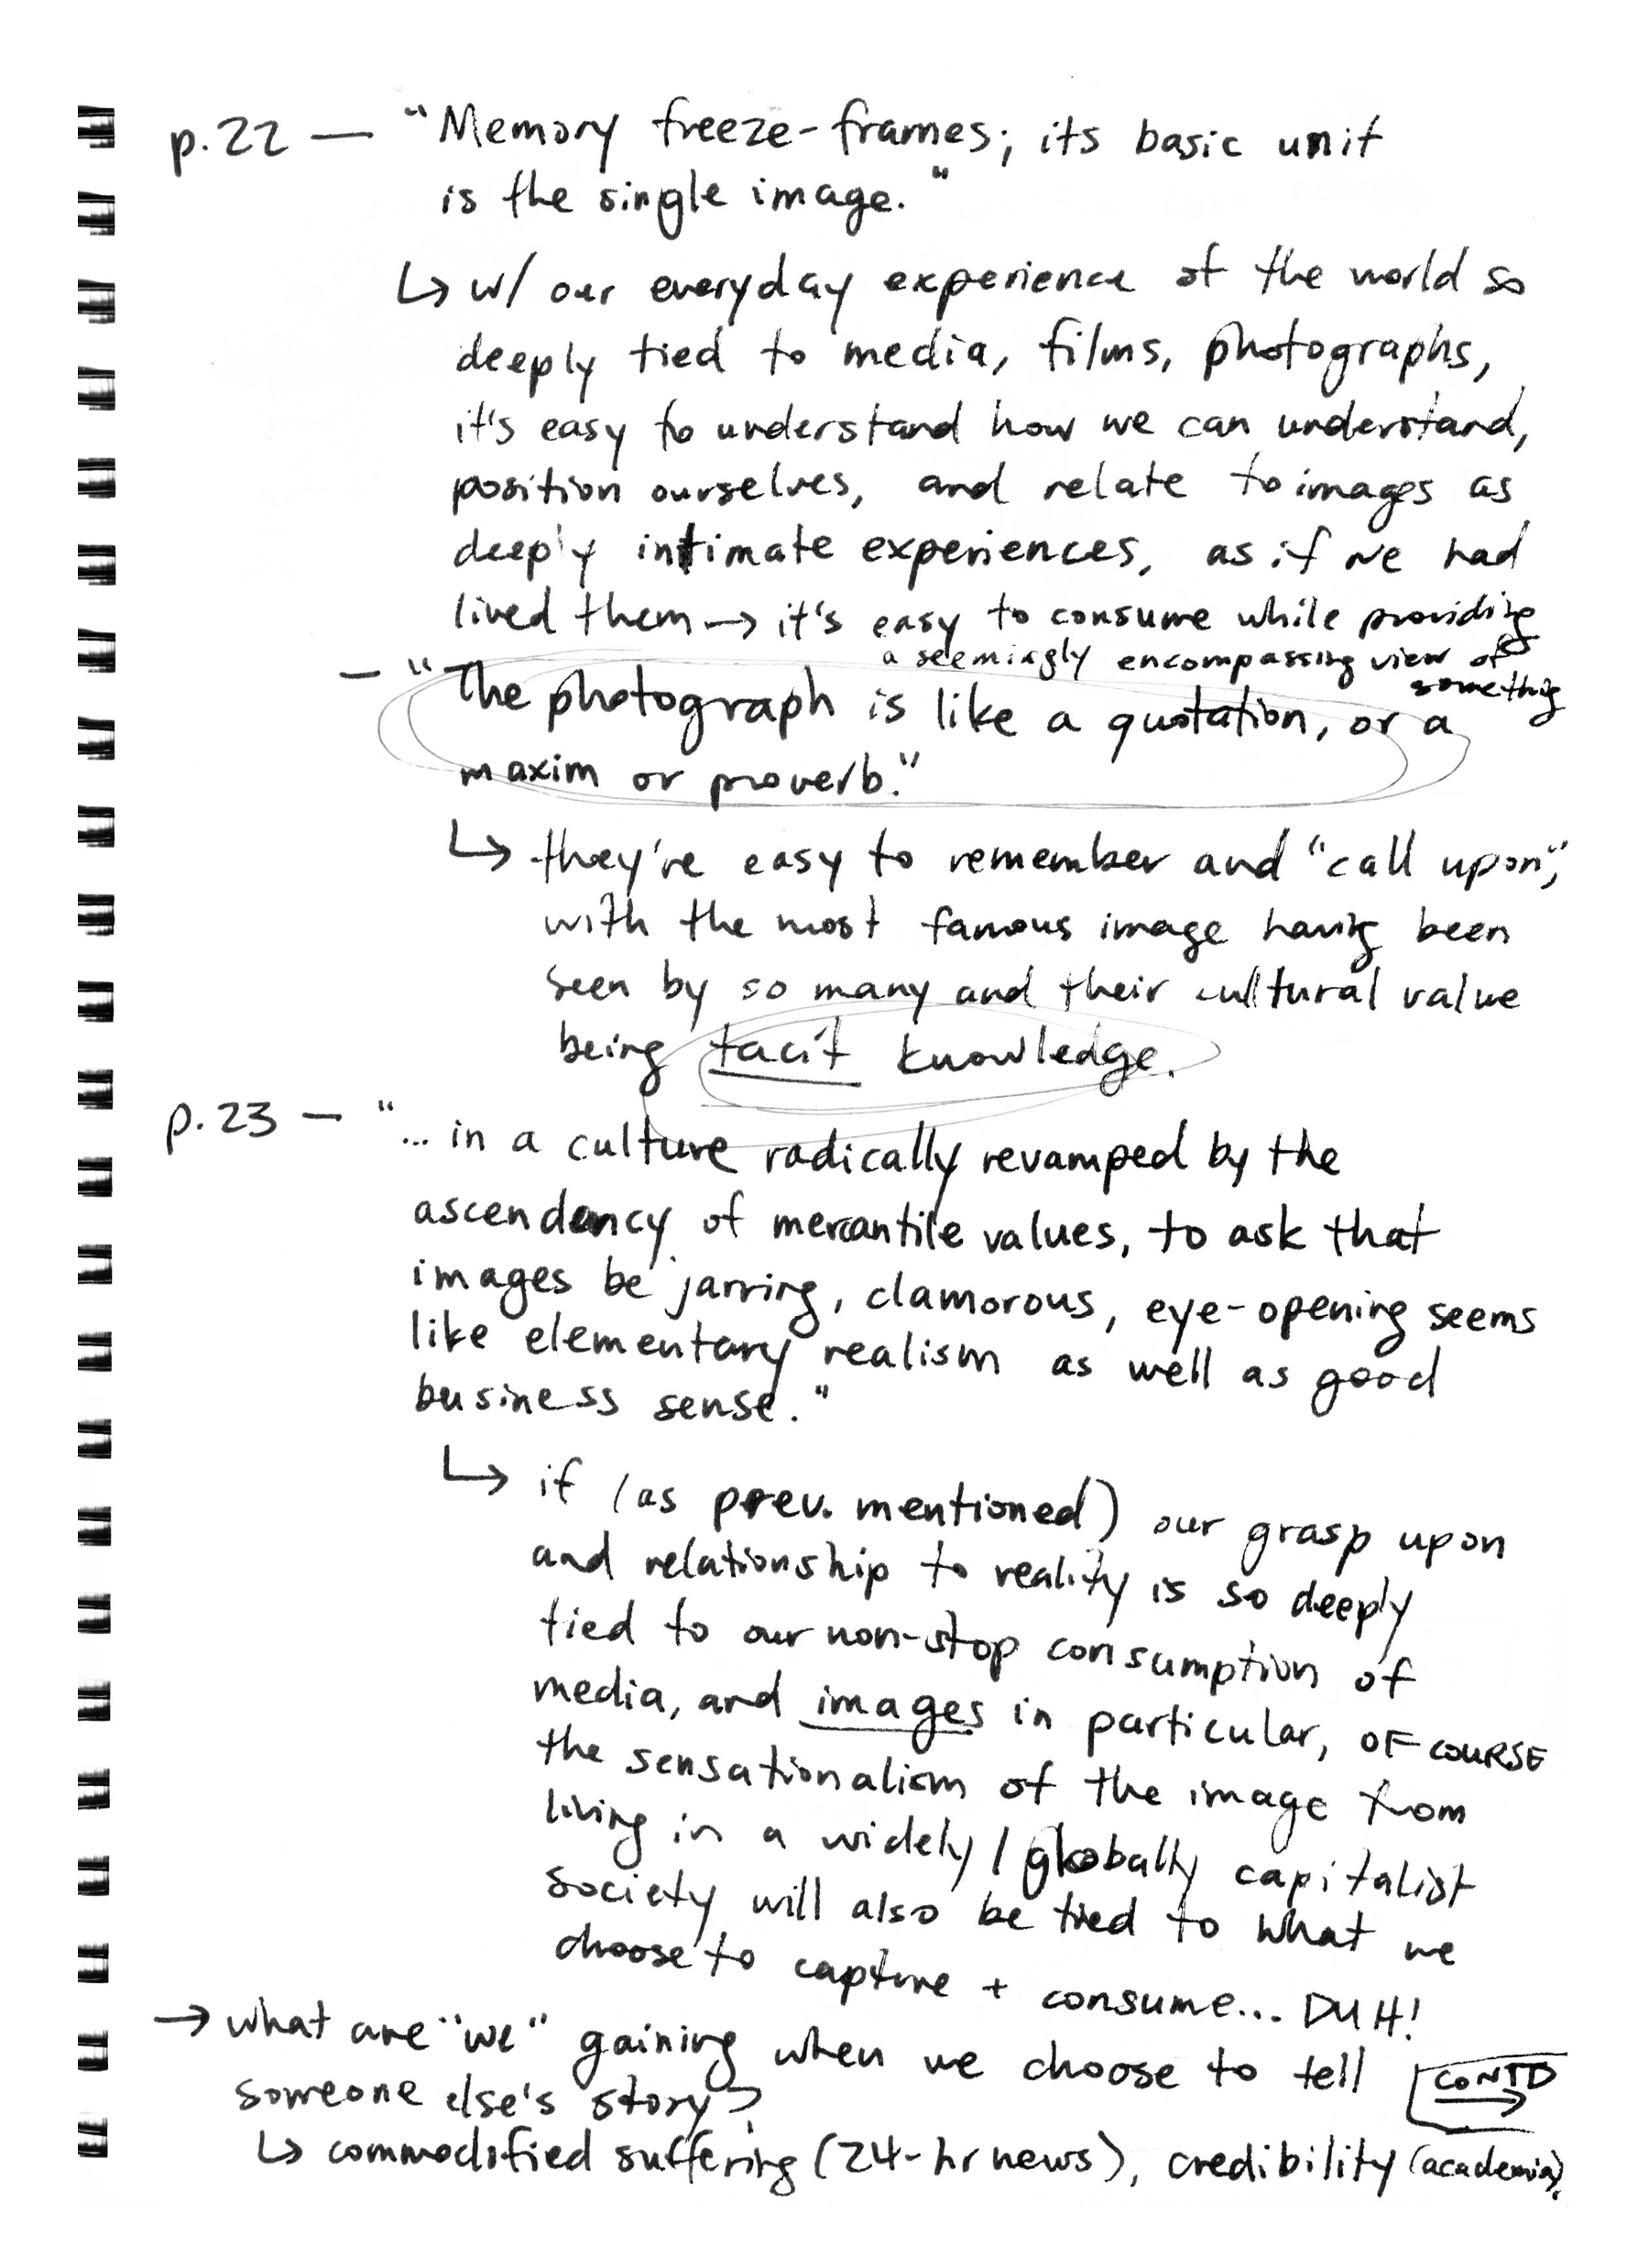 p.22 — "Memory freeze-frames; its basic unit
is the single image."
↳ w/ our everyday experience of the world so
deeply tied to media, films, photographs,
it's easy to understand how we can understand,
position ourselves, and relate to images as
deeply intimate experiences, as if we had
lived them → it's easy to consume while providing
a seemingly encompassing view of
something
— "The photograph is like a quotation, or a
maxim or proverb."
↳ they're easy to remember and "call upon",
with the most famous image having been
seen by so many and their cultural value
being tacit knowledge.
p.23 — "... in a culture radically revamped by the
ascendancy of mercantile values, to ask that
images be jarring, clamorous, eye-opening seems
like elementary realism as well as good
business sense."
↳ if (as prev. mentioned) our grasp upon
and relationship to reality is so deeply
tied to our non-stop consumption of
media, and images in particular, OF COURSE
the sensationalism of the image from
living in a widely / globally capitalist
society will also be tied to what we
choose to capture + consume... DUH!
→ what are "we" gaining when we choose to tell
someone else's story?
CONTD →
↳ commodified suffering (24-hr news), credibility (academia).